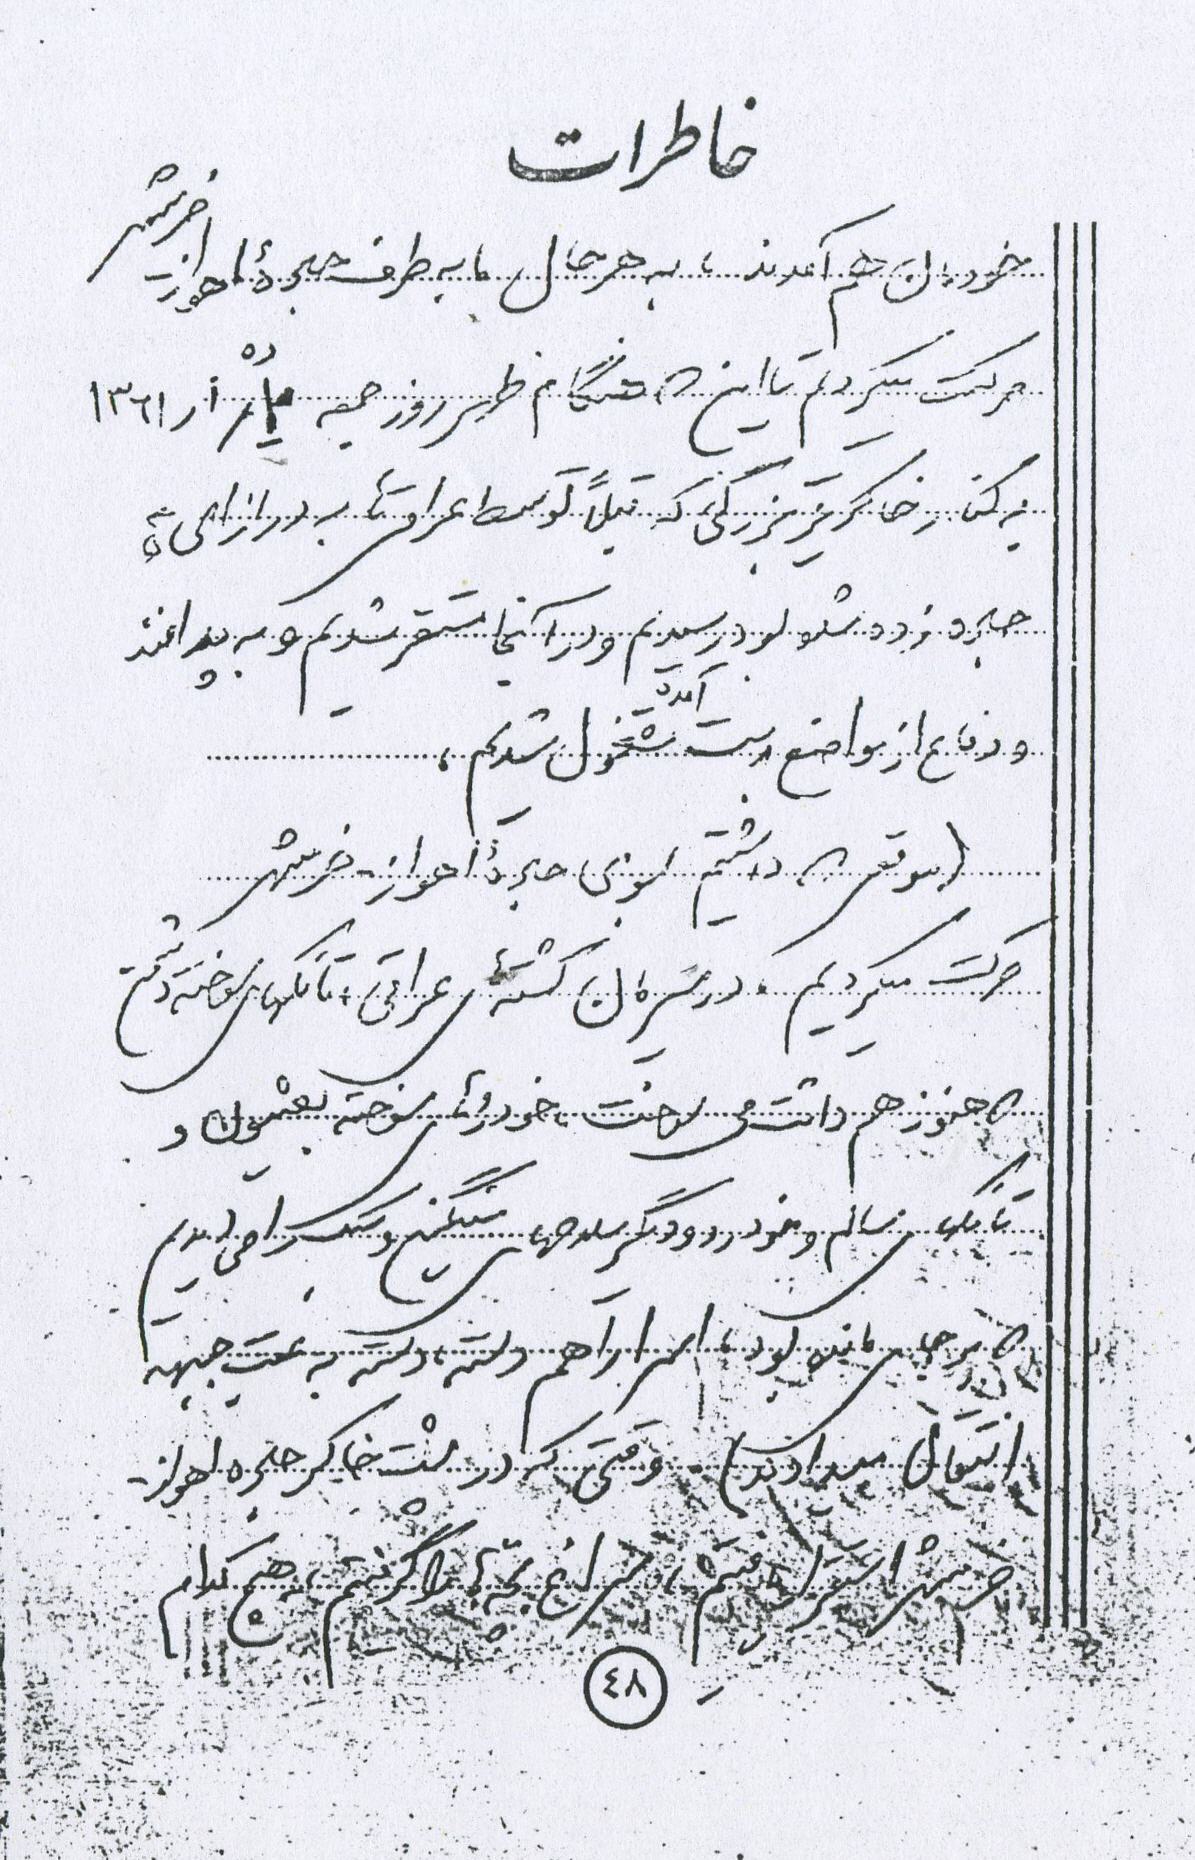 خاطرات
خودمان هم آمدند، به هر حال ما به طرف جادهٔ اهواز- خرمشهر
حرکت میکردیم تا این که هنگام ظهر روز جمعه ۱۳۶۱
به کنار خاکریز بزرگی که قبلاً توسط عراقی‌ها به درازای
جاده زده شده بود رسیدیم و در آنجا مستقر شدیم و به پدافند
و دفاع از مواضع بدست آمده مشغول شدیم،
(موقعی که داشتیم بسوی جادهٔ اهواز- خرمشهر
حرکت میکردیم، در مسیرمان کشته‌های عراقی، تانکهای سوخته دشمن
که هنوز هم داشت می سوخت، خودروهای سوخته بعثیون و
تانکهای سالم و خودرو و دیگر سلاحهای سنگین و سبک را می‌دیدیم
که بر جای مانده بود، اسرا را هم دسته، دسته به عقب جبهه
انتقال میدادند). وقتی که در پشت خاکریز جاده اهواز-
خرمشهر استقرار یافتیم، سراغ بچه‌ها را گرفتیم، هیچ کدام
۴۸